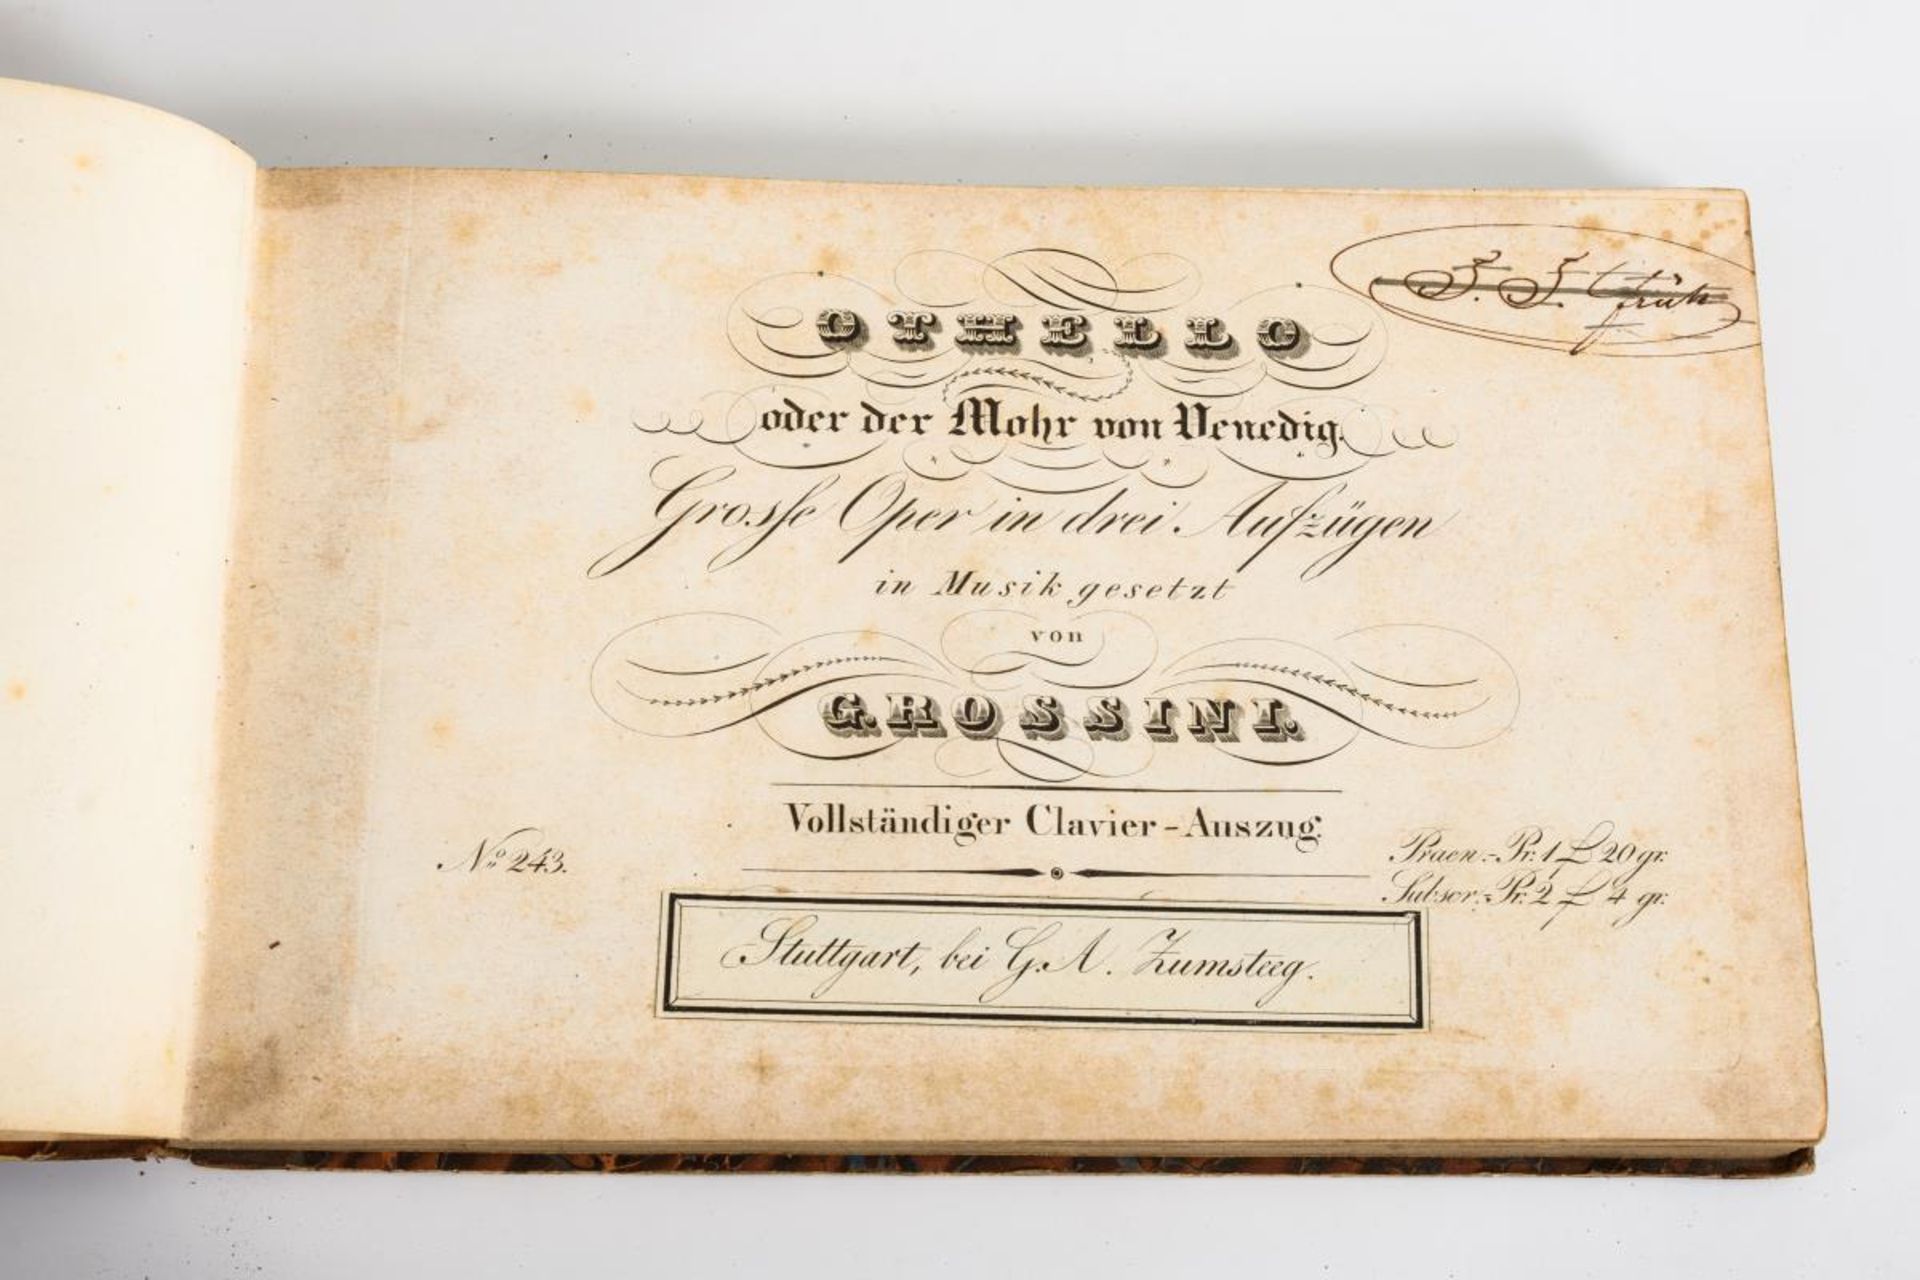 OTHELLO
oder der Mohr von Venedig.
Grosse Oper in drei Aufzügen
in Musik gesetzt
von
G. ROSSINI.
Vollständiger Clavier-Auszug.
No 243.
Praen.-Pr. 1 20 gr.
Subscr.-Pr. 2 4 gr.
Stuttgart, bei G. A. Zumsteeg.